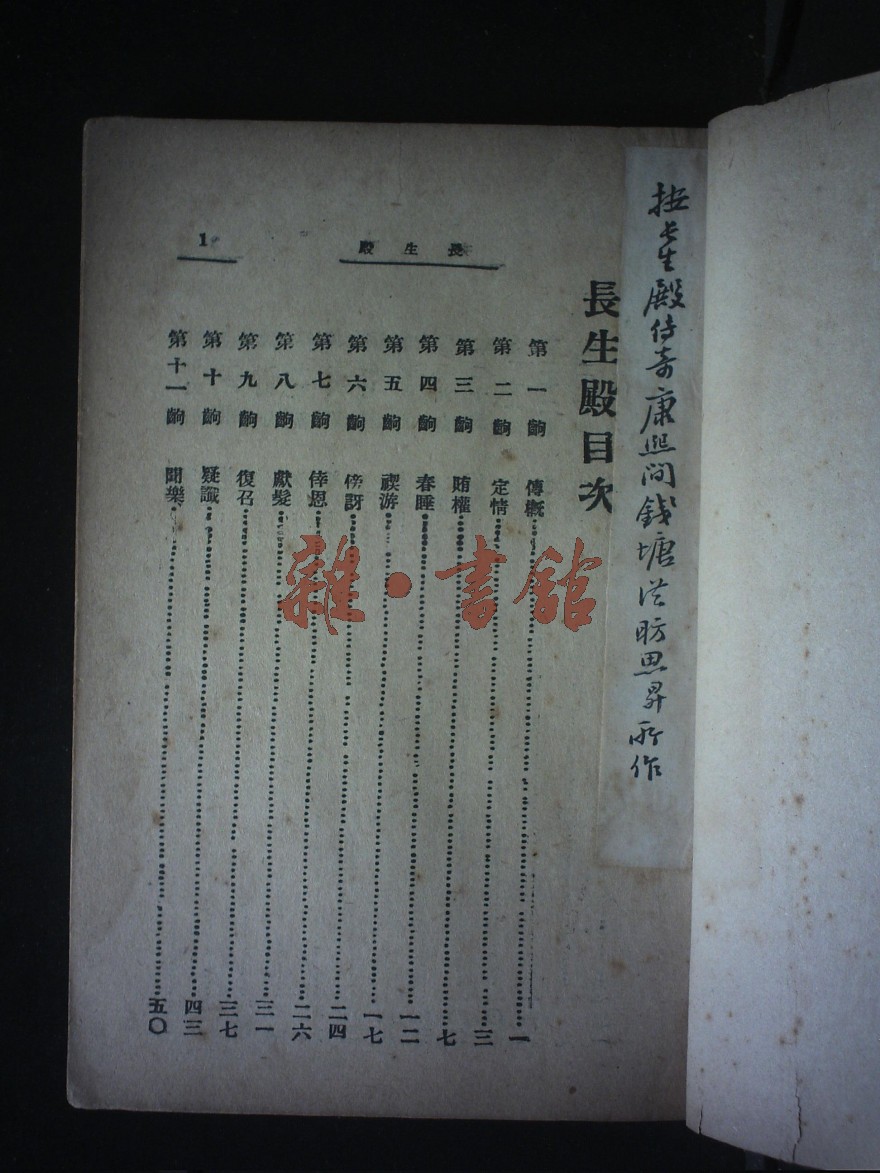 按長生殿傳奇康熙間錢塘洪昉思昇所作
長生殿
1
長生殿目次
第一齣 傳槪……一
第二齣 定情……三
第三齣 賄權……七
第四齣 春睡……一二
第五齣 禊游……一七
第六齣 傍訝……二四
第七齣 倖恩……二六
第八齣 獻髮……三一
第九齣 復召……三七
第十齣 疑讖……四三
第十一齣 聞樂……五〇
雜·書館